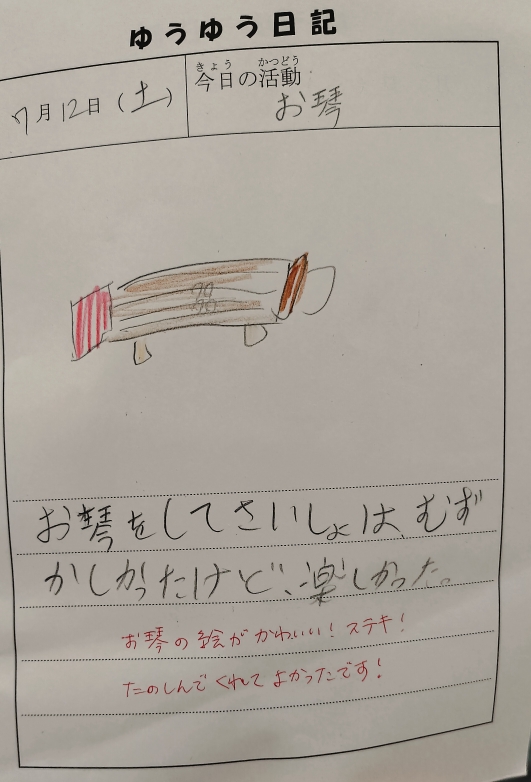 ゆうゆう日記
7月12日(土)
きょう かつどう
今日の活動
お琴
お琴をしてさいしょは、むず
かしかったけど、楽しかった。
お琴の絵がかわいい!ステキ!
たのしんでくれてよかったです!